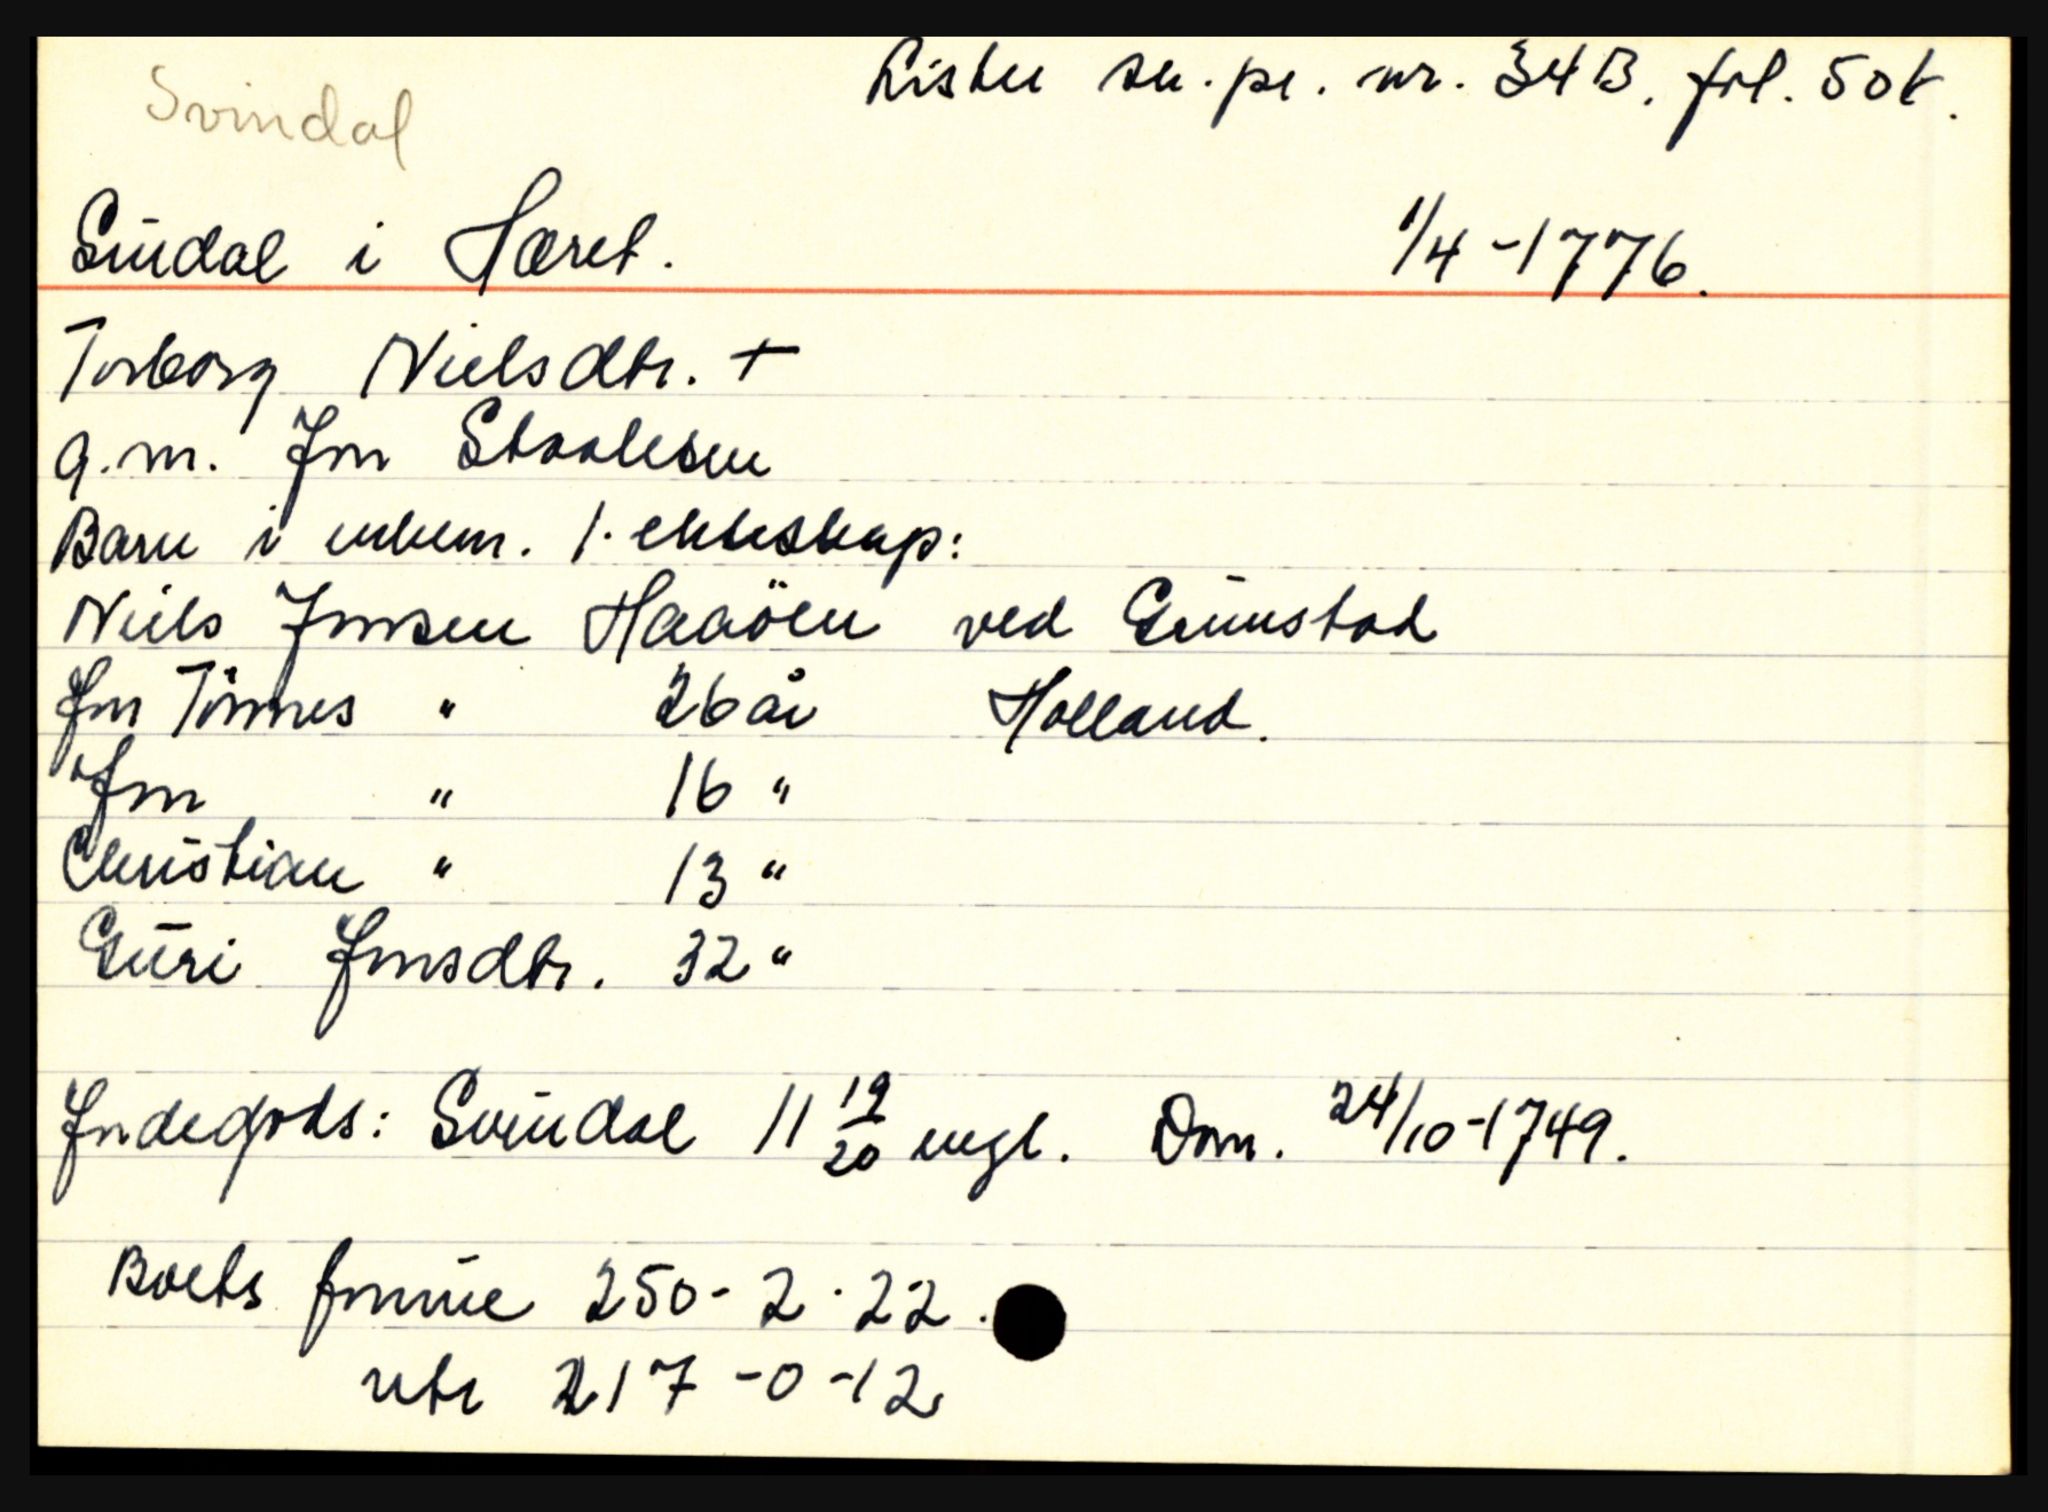 Svindal
Lister sk. pr. nr. 34B. fol. 50b.
Sindal i Hæret.
1/4 - 1776.
Torborg Nielsdtr. +
g.m. Jon Staalesen
Barn i enkem. 1. ekteskap:
Niels Jonsen Haaöen ved Grimstad
Jon Tönnes " 26 år Holland.
Jon " 16 "
Christian " 13 "
Guri Jonsdtr. 32 "
Jordegods: Svindal 11 19/20 engl. Dom. 24/10-1749.
Boets formue 250 - 2 - 22.
nto 217 - 0 - 12